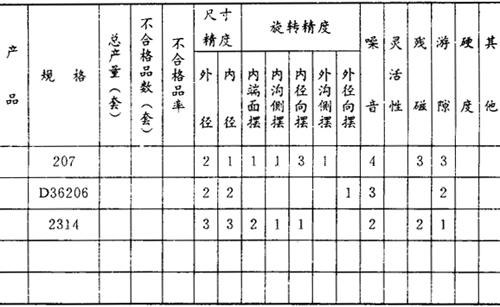 产品 规格 总产量(套) 不合格品数(套) 不合格品率 尺寸精度 旋转精度 噪音 灵活性 残磁 游隙 硬度 其他
外径 内径 内端面摆 内沟侧摆 内径向摆 外沟侧摆 外径向摆
207 2 1 1 1 3 1 4 3 3
D36206 2 2 1 3 2
2314 3 3 2 1 1 2 2 1